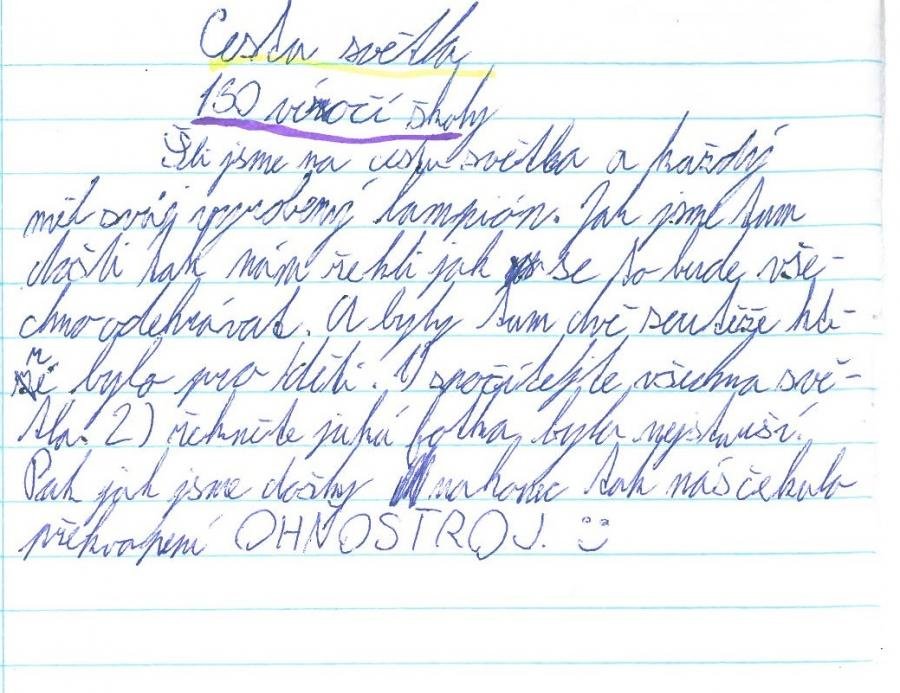 Cesta světla
150 víročí školy
Šli jsme na cestu světla a každý
měl svůj vyrobený lampión. Jak jsme tam
došli tak nám řekli jak se to bude vše-
chno odehrávat. A byly tam dvě soutěže kte-
ré bylo pro děti. 1) spočítejte všechna svě-
tla. 2) řekněte jaká fotka byla nejstarší.
Pak jak jsme došly na konec tak nás čekalo
překvapení OHNOSTROJ. :)